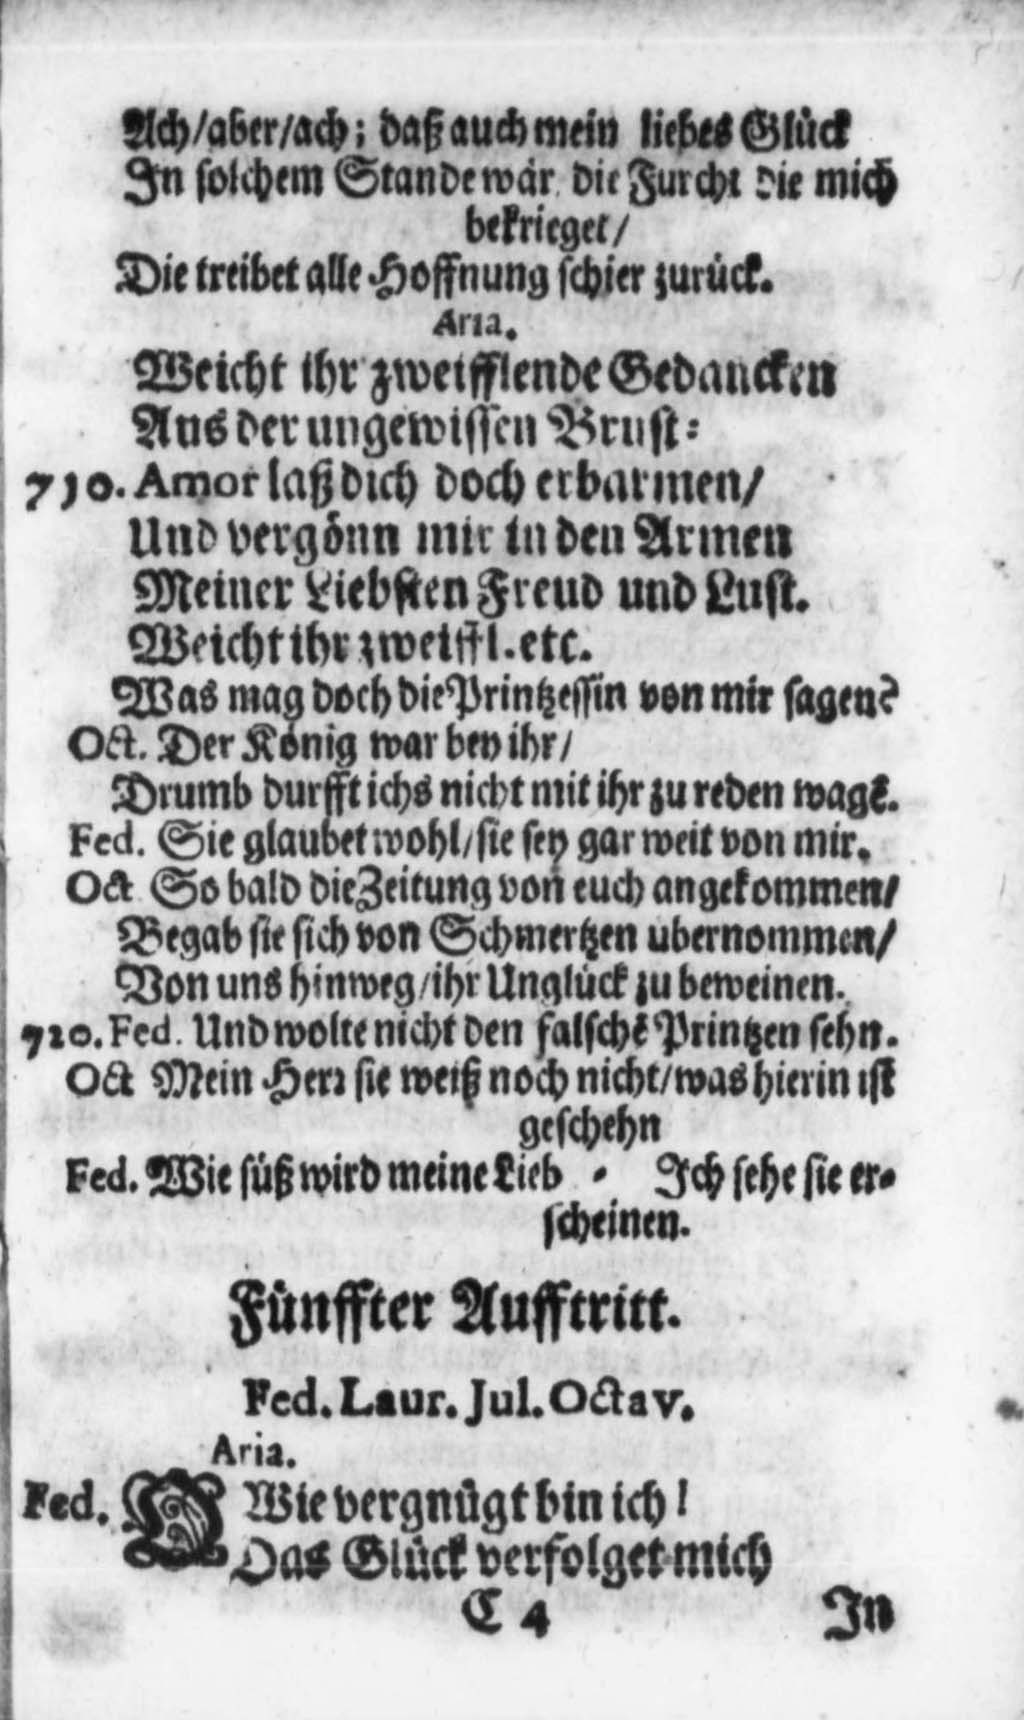 Ach/aber/ach; daß auch mein liebes Glück
In solchem Stande wär, die Furcht die mich
bekrieget/
Die treibet alle Hoffnung schier zurück.
Aria.
Weicht ihr zweifflende Gedancken
Aus der ungewissen Brust:
710. Amor laß dich doch erbarmen/
Und vergönn mir in den Armen
Meiner Liebsten Freud und Lust.
Weicht ihr zweiffl. etc.
Was mag doch die Printzessin von mir sagen?
Oct. Der König war bey ihr/
Drumb durfft ichs nicht mit ihr zu reden wagē.
Fed. Sie glaubet wohl/sie sey gar weit von mir.
Oct So bald die Zeitung von euch angekommen/
Begab sie sich von Schmertzen ubernommen/
Von uns hinweg/ihr Unglück zu beweinen.
720. Fed. Und wolte nicht den falschē Printzen sehn.
Oct Mein Herr sie weiß noch nicht/was hierin ist
geschehn
Fed. Wie süß wird meine Lieb - Ich sehe sie er-
scheinen.
Fünffter Aufftritt.
Fed. Laur. Jul. Octav.
Aria.
Fed. O Wie vergnügt bin ich!
Das Glück verfolget mich
C 4 In